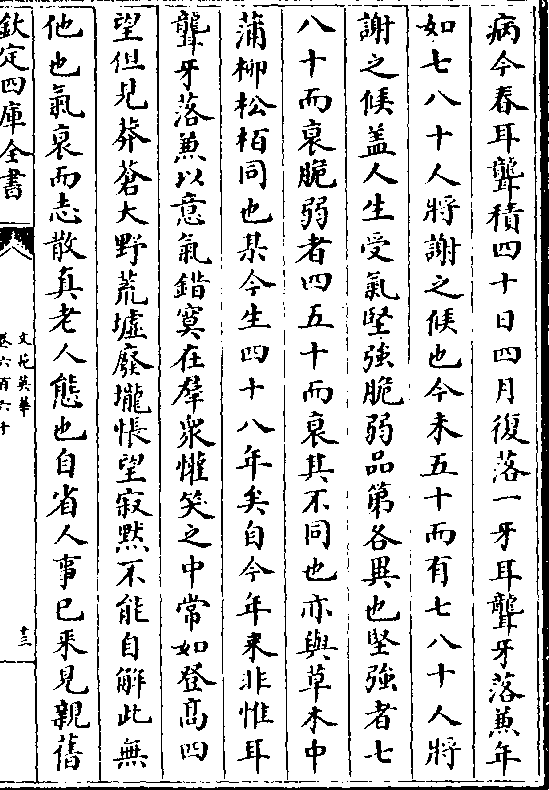 病今春耳聾積四十日四月復落一牙耳聾牙落兼年
如七八十人將謝之候也今未五十而有七八十人將
謝之候盖人生受氣堅強脆弱品第各異也堅強者七
八十而衰脆弱者四五十而衰其不同也亦與草木中
蒲柳松栢同也某今生四十八年矣自今年來非惟耳
聾牙落兼以意氣錯寞在羣衆懽笑之中常如登高四
望但見莽蒼大野荒墟廢壠悵望寂默不能自解此無
他也氣衰而志散真老人態也自省人事已來見親舊
欽定四庫全書
文苑英華
卷六百六十
十三